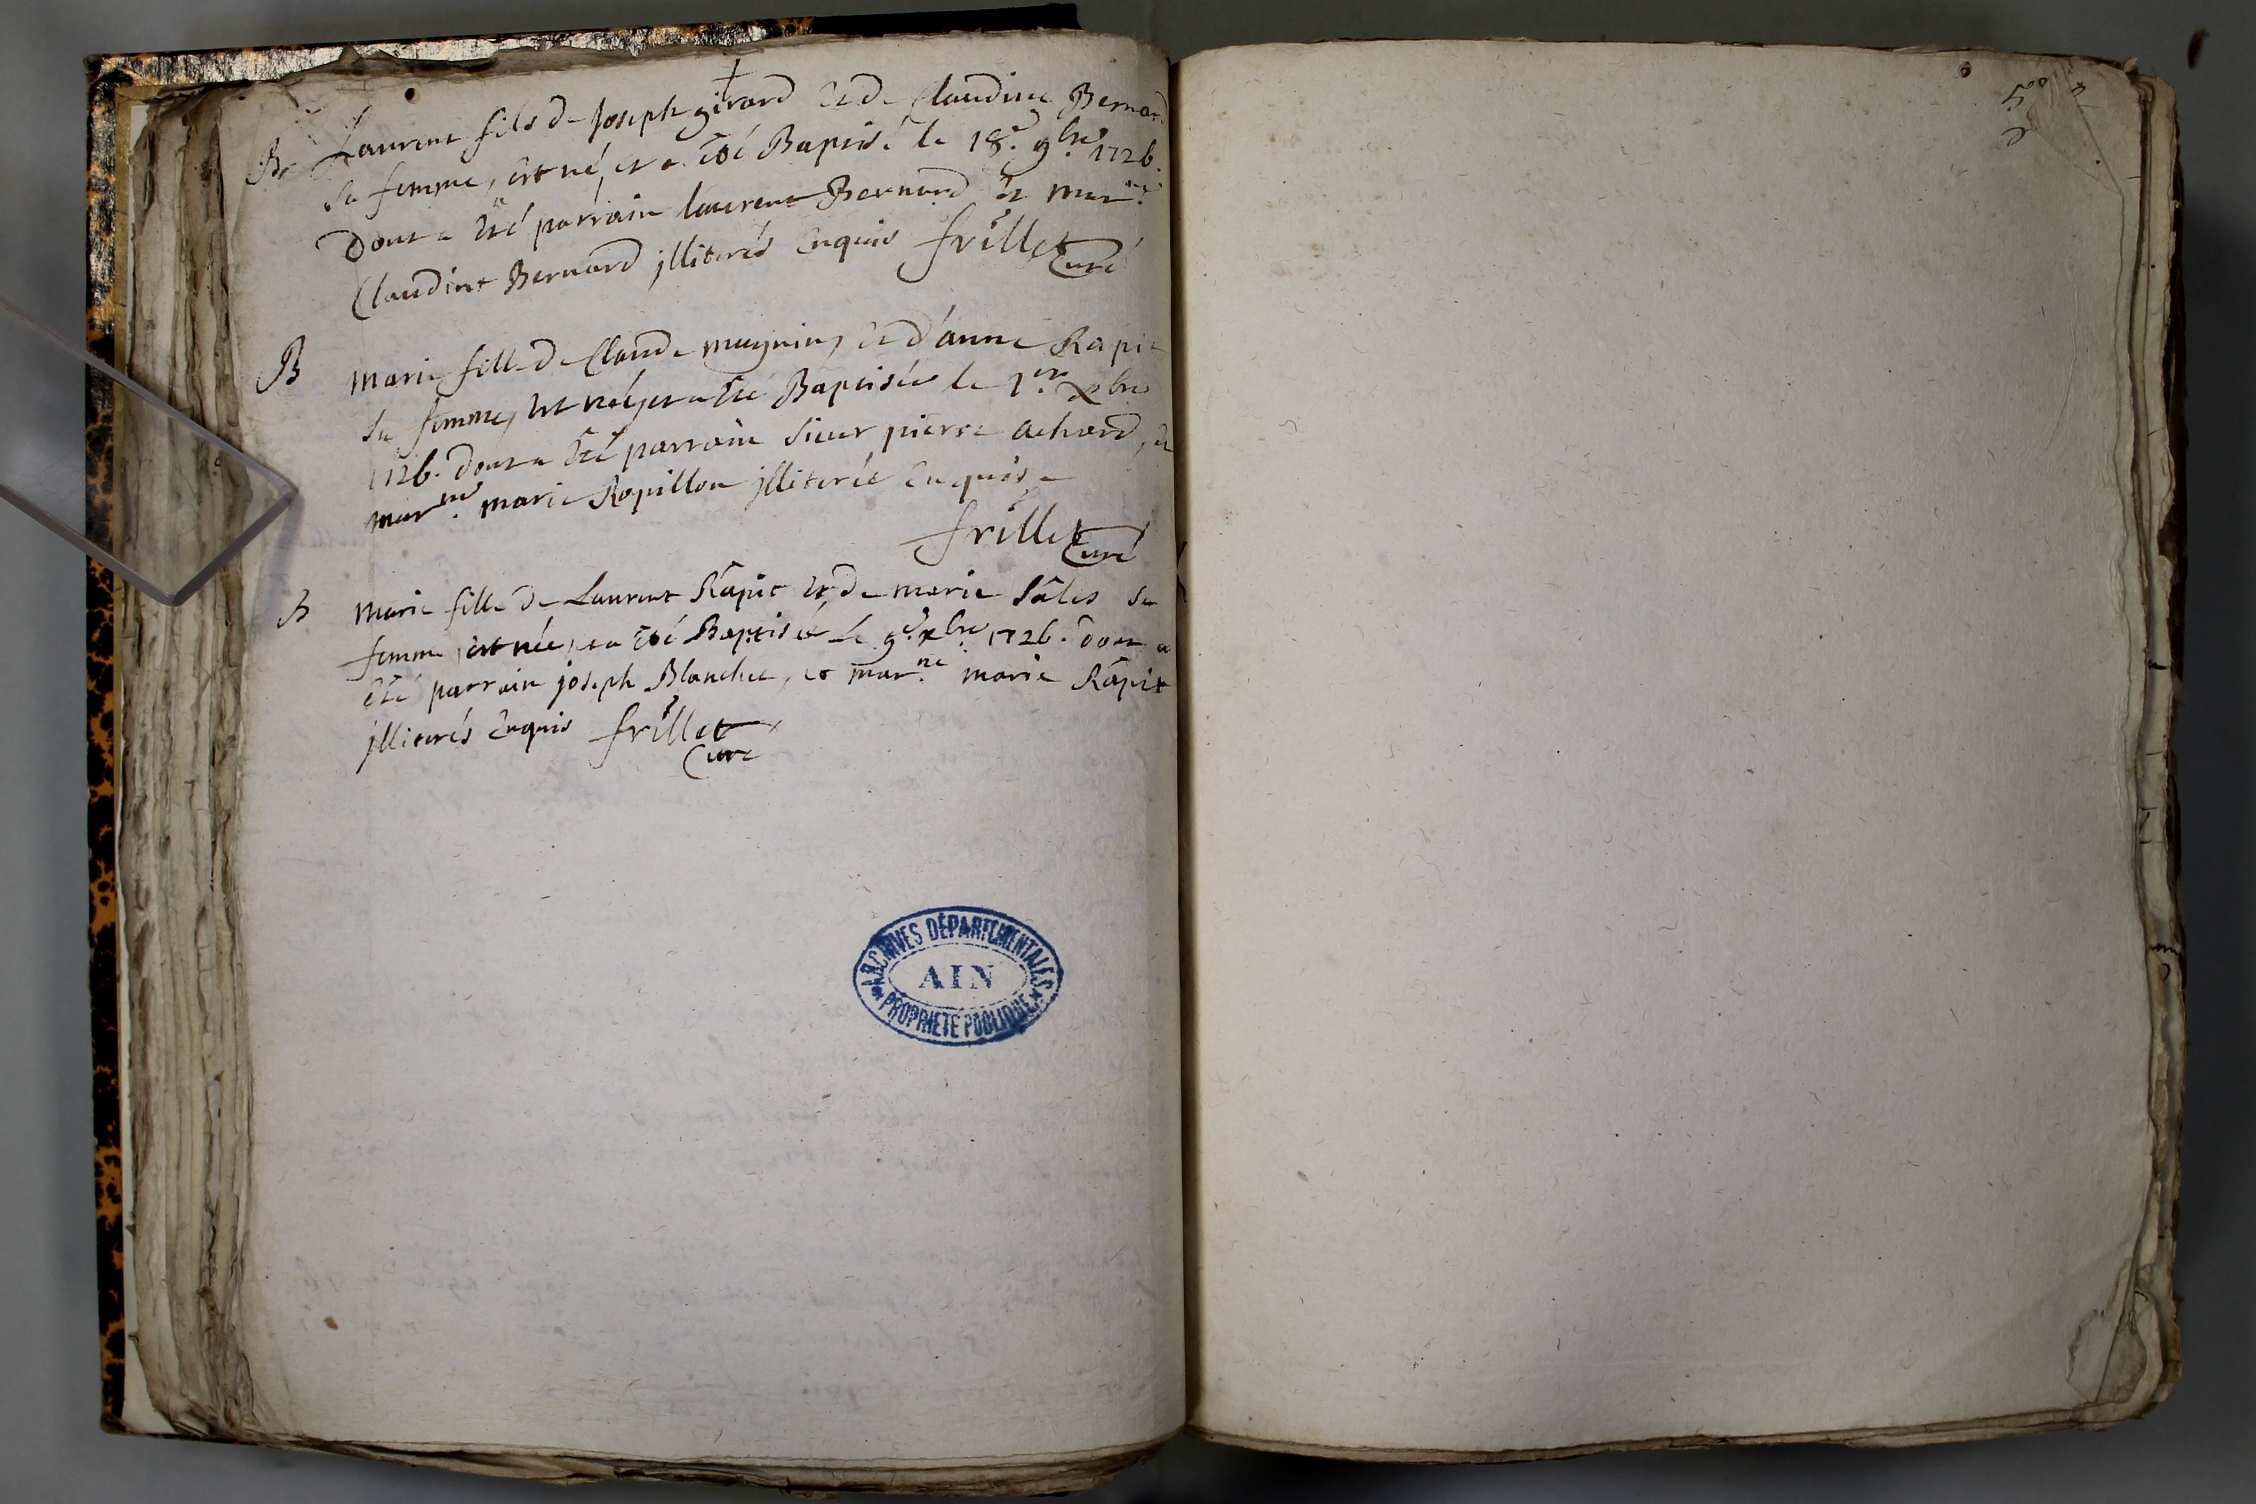 B Laurent fils de Joseph girard et de Claudine Bernard
sa femme, est né, et a été Baptisé le 18.e 9bre 1726.
dont a été parrain laurent Bernard et mar.ne
Claudine Bernard jlliterés Enquis frillet
Curé
B Marie fille de Claude magnin, et d'anne Rapit
sa femme, est née, et a été Baptisée le 1.er Xbre
1726. dont a été parrain sieur pierre achard, et
mar.ne marie Ropillon jlliterée Enquise
frillet
Curé
B Marie fille de Laurent Râpit et de marie Sâles sa
femme, est née, et a été Baptisée le 9.e xbre 1726. dont a
été parrain joseph Blanchet, et mar.ne marie Râpit
jlliterés Enquis frillet
Curé
ARCHIVES DÉPARTEMENTALES
AIN
PROPRIÉTÉ PUBLIQUE